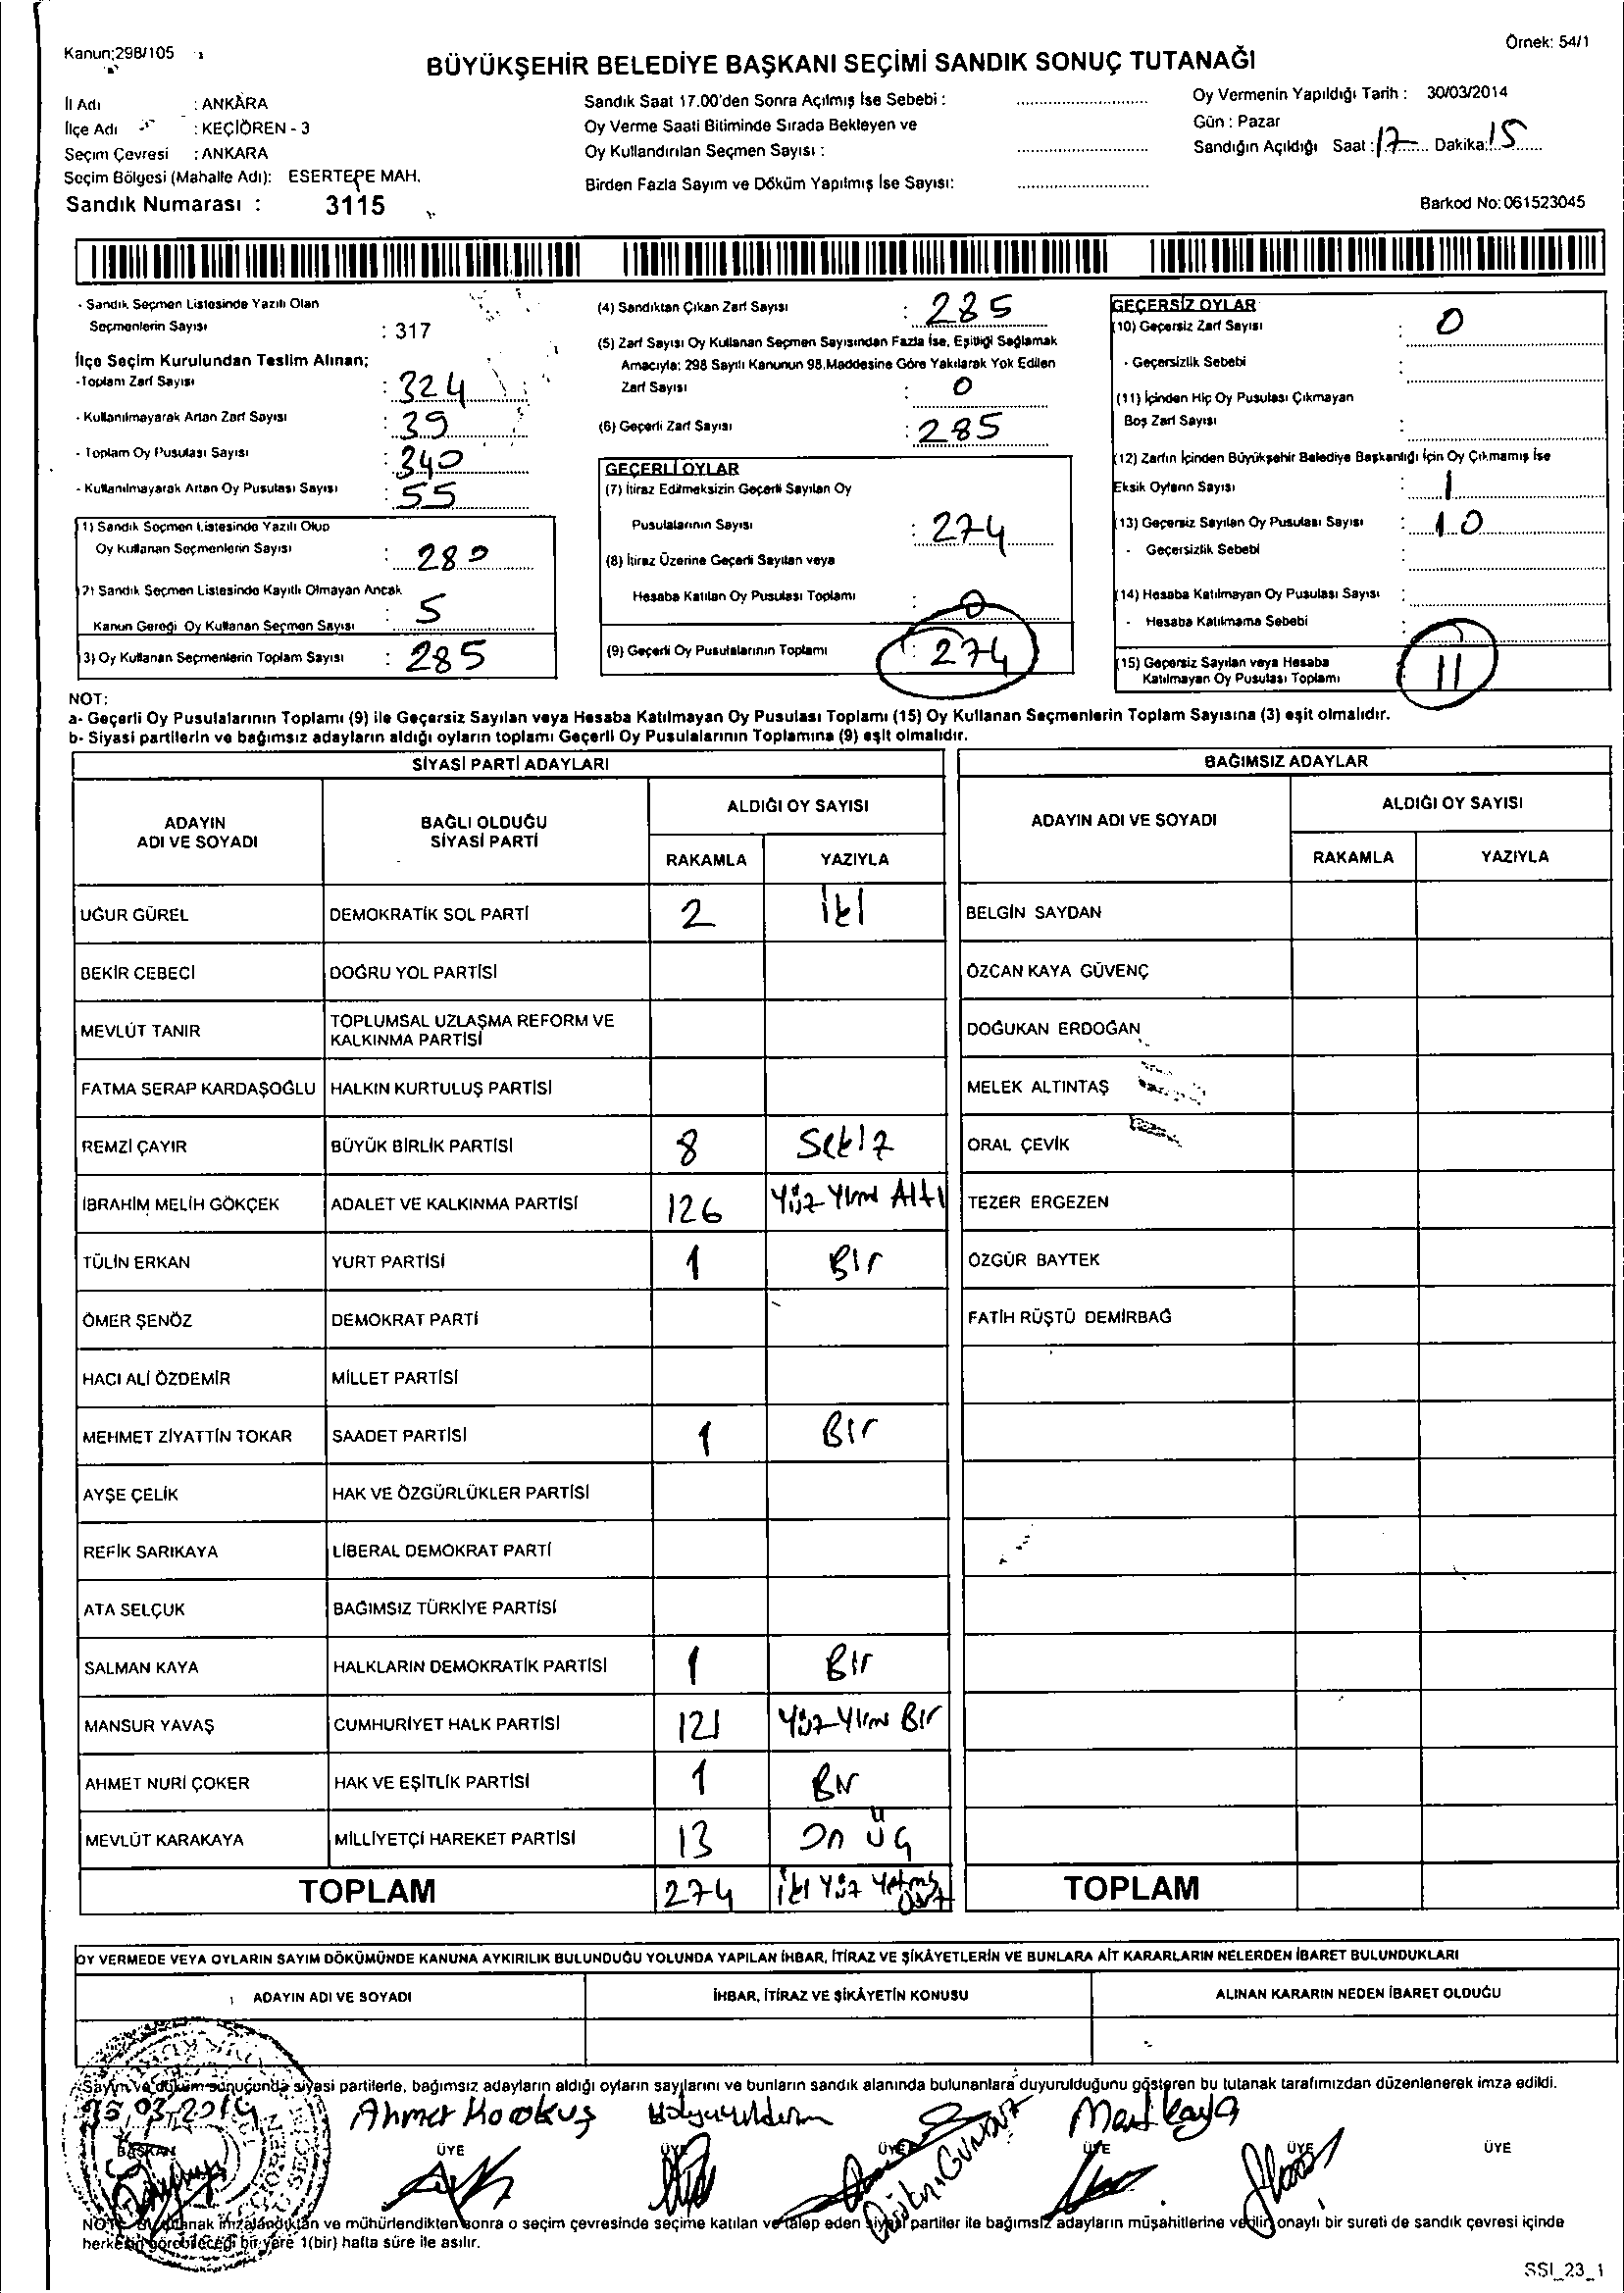 Kanun;298/105
Örnek: 54/1
BÜYÜKŞEHİR BELEDİYE BAŞKANI SEÇİMİ SANDIK SONUÇ TUTANAĞI
İl Adı : ANKARA
İlçe Adı : KEÇİÖREN - 3
Seçim Çevresi : ANKARA
Seçim Bölgesi (Mahalle Adı): ESERTEPE MAH.
Sandık Numarası : 3115
Sandık Saat 17.00'den Sonra Açılmış İse Sebebi :
Oy Verme Saati Bitiminde Sırada Bekleyen ve
Oy Kullandırılan Seçmen Sayısı :
Birden Fazla Sayım ve Döküm Yapılmış İse Sayısı:
Oy Vermenin Yapıldığı Tarih : 30/03/2014
Gün : Pazar
Sandığın Açıldığı Saat : 17 Dakika: 15
Barkod No: 061523045
- Sandık Seçmen Listesinde Yazılı Olan
Seçmenlerin Sayısı : 317
İlçe Seçim Kurulundan Teslim Alınan;
-Toplam Zarf Sayısı : 324
- Kullanılmayarak Artan Zarf Sayısı : 39
- Toplam Oy Pusulası Sayısı : 340
- Kullanılmayarak Artan Oy Pusulası Sayısı : 55
1) Sandık Seçmen Listesinde Yazılı Olup
Oy Kullanan Seçmenlerin Sayısı : 280
2) Sandık Seçmen Listesinde Kayıtlı Olmayan Ancak
Kanun Gereği Oy Kullanan Seçmen Sayısı : 5
3) Oy Kullanan Seçmenlerin Toplam Sayısı : 285
(4) Sandıktan Çıkan Zarf Sayısı : 285
(5) Zarf Sayısı Oy Kullanan Seçmen Sayısından Fazla İse, Eşitliği Sağlamak
Amacıyla: 298 Sayılı Kanunun 98.Maddesine Göre Yakılarak Yok Edilen
Zarf Sayısı : 0
(6) Geçerli Zarf Sayısı : 285
GEÇERLİ OYLAR
(7) İtiraz Edilmeksizin Geçerli Sayılan Oy
Pusulalarının Sayısı : 274
(8) İtiraz Üzerine Geçerli Sayılan veya
Hesaba Katılan Oy Pusulası Toplamı : 0
(9) Geçerli Oy Pusulalarının Toplamı : 274
GEÇERSİZ OYLAR
(10) Geçersiz Zarf Sayısı : 0
- Geçersizlik Sebebi :
(11) İçinden Hiç Oy Pusulası Çıkmayan
Boş Zarf Sayısı :
(12) Zarfın İçinden Büyükşehir Belediye Başkanlığı İçin Oy Çıkmamış İse
Eksik Oyların Sayısı : 1
(13) Geçersiz Sayılan Oy Pusulası Sayısı : 10
- Geçersizlik Sebebi :
(14) Hesaba Katılmayan Oy Pusulası Sayısı :
- Hesaba Katılmama Sebebi :
(15) Geçersiz Sayılan veya Hesaba
Katılmayan Oy Pusulası Toplamı : 11
NOT:
a- Geçerli Oy Pusulalarının Toplamı (9) ile Geçersiz Sayılan veya Hesaba Katılmayan Oy Pusulası Toplamı (15) Oy Kullanan Seçmenlerin Toplam Sayısına (3) eşit olmalıdır.
b- Siyasi partilerin ve bağımsız adayların aldığı oyların toplamı Geçerli Oy Pusulalarının Toplamına (9) eşit olmalıdır.
SİYASİ PARTİ ADAYLARI
ADAYIN ADI VE SOYADI BAĞLI OLDUĞU SİYASİ PARTİ ALDIĞI OY SAYISI
RAKAMLA YAZIYLA
UĞUR GÜREL DEMOKRATİK SOL PARTİ 2 İki
BEKİR CEBECİ DOĞRU YOL PARTİSİ
MEVLÜT TANIR TOPLUMSAL UZLAŞMA REFORM VE KALKINMA PARTİSİ
FATMA SERAP KARDAŞOĞLU HALKIN KURTULUŞ PARTİSİ
REMZİ ÇAYIR BÜYÜK BİRLİK PARTİSİ 8 Sekiz
İBRAHİM MELİH GÖKÇEK ADALET VE KALKINMA PARTİSİ 126 Yüz Yirmi Altı
TÜLİN ERKAN YURT PARTİSİ 1 Bir
ÖMER ŞENÖZ DEMOKRAT PARTİ
HACI ALİ ÖZDEMİR MİLLET PARTİSİ
MEHMET ZİYATTİN TOKAR SAADET PARTİSİ 1 Bir
AYŞE ÇELİK HAK VE ÖZGÜRLÜKLER PARTİSİ
REFİK SARIKAYA LİBERAL DEMOKRAT PARTİ
ATA SELÇUK BAĞIMSIZ TÜRKİYE PARTİSİ
SALMAN KAYA HALKLARIN DEMOKRATİK PARTİSİ 1 Bir
MANSUR YAVAŞ CUMHURİYET HALK PARTİSİ 121 Yüz Yirmi Bir
AHMET NURİ ÇOKER HAK VE EŞİTLİK PARTİSİ 1 Bir
MEVLÜT KARAKAYA MİLLİYETÇİ HAREKET PARTİSİ 13 On Üç
TOPLAM 274 İki Yüz Yetmiş Dört
BAĞIMSIZ ADAYLAR
ADAYIN ADI VE SOYADI ALDIĞI OY SAYISI
RAKAMLA YAZIYLA
BELGİN SAYDAN
ÖZCAN KAYA GÜVENÇ
DOĞUKAN ERDOĞAN
MELEK ALTINTAŞ
ORAL ÇEVİK
TEZER ERGEZEN
ÖZGÜR BAYTEK
FATİH RÜŞTÜ DEMİRBAĞ
TOPLAM
OY VERMEDE VEYA OYLARIN SAYIM DÖKÜMÜNDE KANUNA AYKIRILIK BULUNDUĞU YOLUNDA YAPILAN İHBAR, İTİRAZ VE ŞİKÂYETLERİN VE BUNLARA AİT KARARLARIN NELERDEN İBARET BULUNDUKLARI
ADAYIN ADI VE SOYADI İHBAR, İTİRAZ VE ŞİKÂYETİN KONUSU ALINAN KARARIN NEDEN İBARET OLDUĞU
Sayım ve döküm sonucunda siyasi partilerle, bağımsız adayların aldığı oyların sayılarını ve bunların sandık alanında bulunanlara duyurulduğunu gösteren bu tutanak tarafımızdan düzenlenerek imza edildi.
03.2014
Ahmet Karakuş Mert Kaya
BAŞKAN ÜYE ÜYE ÜYE ÜYE ÜYE ÜYE
NOT: Bu tutanak imzalandıktan ve mühürlendikten sonra o seçim çevresinde seçime katılan ve talep eden siyasi partiler ile bağımsız adayların müşahitlerine verilir, onaylı bir sureti de sandık çevresi içinde
herkesin görebileceği bir yere 1(bir) hafta süre ile asılır.
SSI_23_1